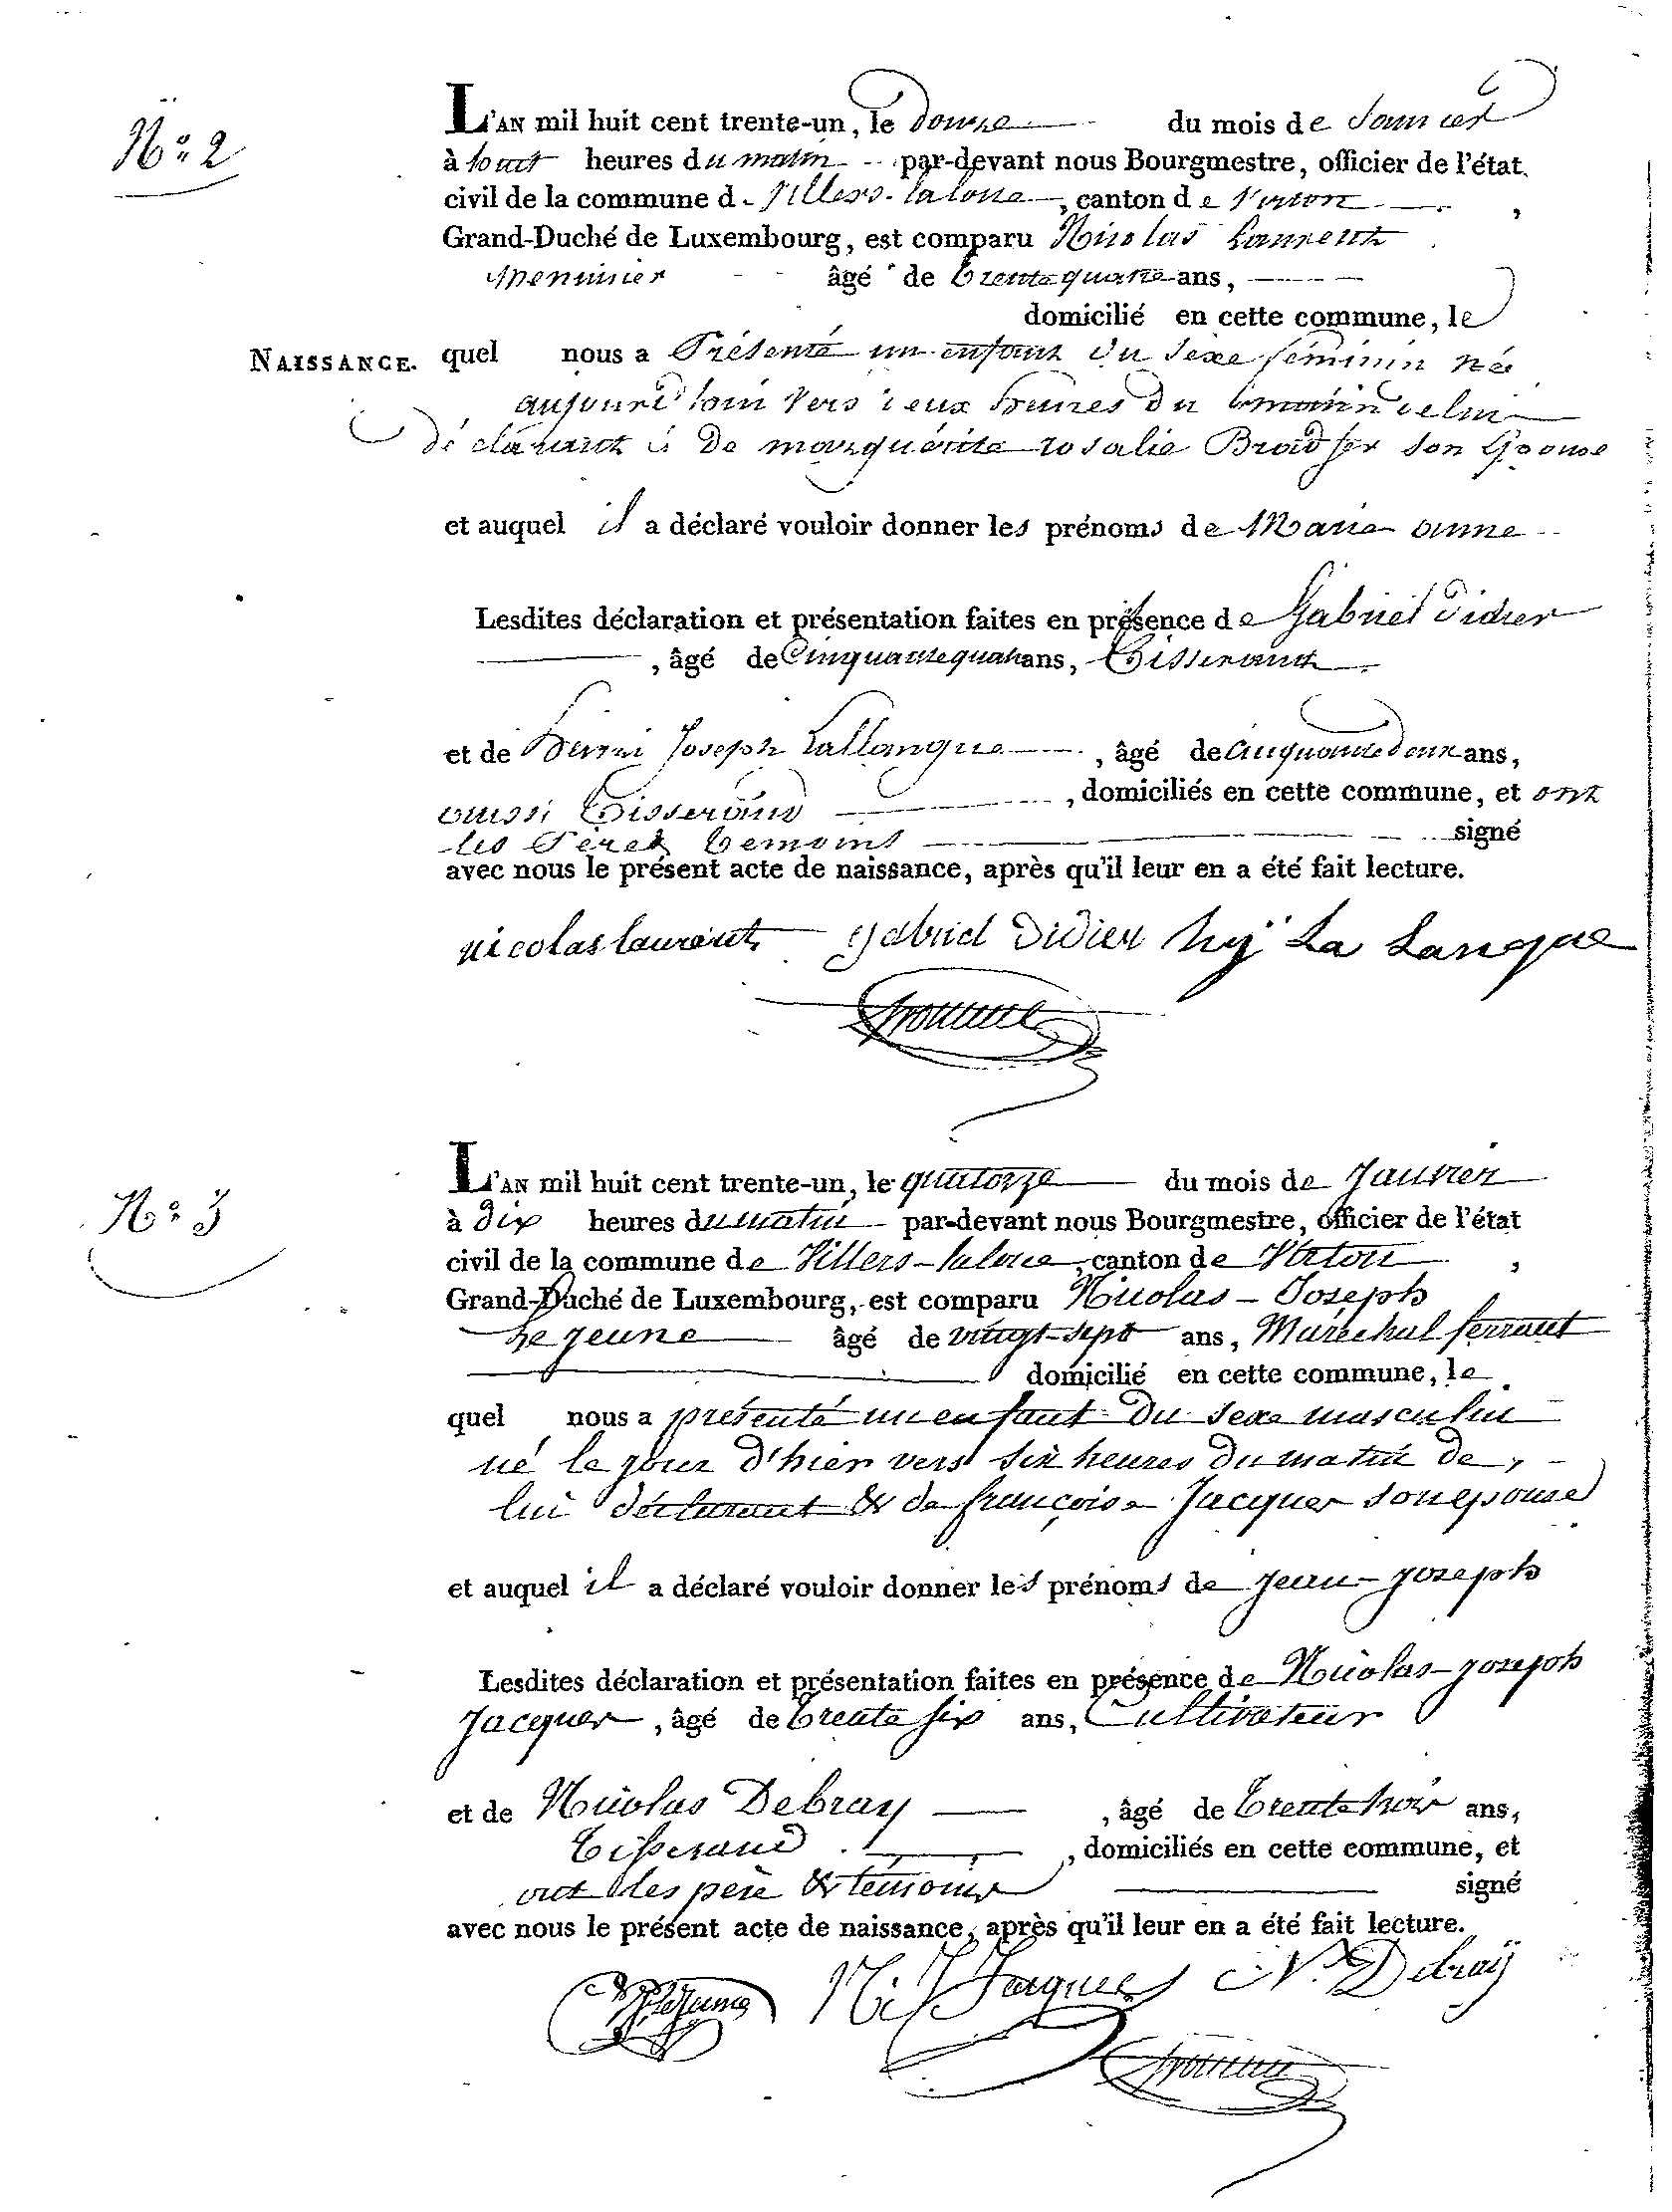 N.o 2
L'AN mil huit cent trente-un, le Douze du mois de Janvier
à huit heures du matin par-devant nous Bourgmestre, officier de l'état
civil de la commune de Villers-laloue, canton de Virton,
Grand-Duché de Luxembourg, est comparu Nicolas Laurent
menuisier âgé de trente quatre ans,
domicilié en cette commune, le
NAISSANCE. quel nous a Présenté un enfant du sexe féminin né
aujourd'hui vers deux heures du matin de lui
déclarant & De marguérite rosalie son Epouse
et auquel il a déclaré vouloir donner les prénoms de Marie anne
Lesdites déclaration et présentation faites en présence de Gabriel Didier
, âgé de Cinquante quatre ans, Tisserand
et de Henri Joseph Lallangue, âgé de cinquante deux ans,
aussi Tisserand, domiciliés en cette commune, et ont
les Père & temoins signé
avec nous le présent acte de naissance, après qu'il leur en a été fait lecture.
nicolas laurent gabriel Didier hÿ La Langue
N.o 3
L'AN mil huit cent trente-un, le quatorze du mois de Janvier
à dix heures du matin par-devant nous Bourgmestre, officier de l'état
civil de la commune de Villers-laloue, canton de Virton,
Grand-Duché de Luxembourg, est comparu Nicolas-Joseph
Le jeune âgé de vingt-sept ans, Maréchal ferrant
domicilié en cette commune, le
quel nous a présenté un enfant Du sexe masculin
né le jour d'hier vers six heures du matin de
lui déclarant & de françoise Jacques son epouse
et auquel il a déclaré vouloir donner les prénoms de jean-joseph
Lesdites déclaration et présentation faites en présence de Nicolas-joseph
Jacques, âgé de trente six ans, Cultivateur
et de Nicolas Debray, âgé de trente trois ans,
tisserand, domiciliés en cette commune, et
ont les père & témoins signé
avec nous le présent acte de naissance, après qu'il leur en a été fait lecture.
Lejeune N. J. Jaques N. Debraÿ